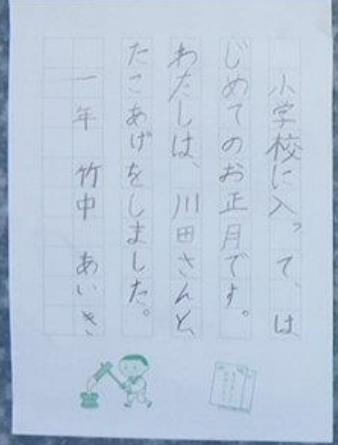 小学校に入って、は
じめてのお正月です。
わたしは、川田さんと、
たこあげをしました。
一年 竹中 あいき